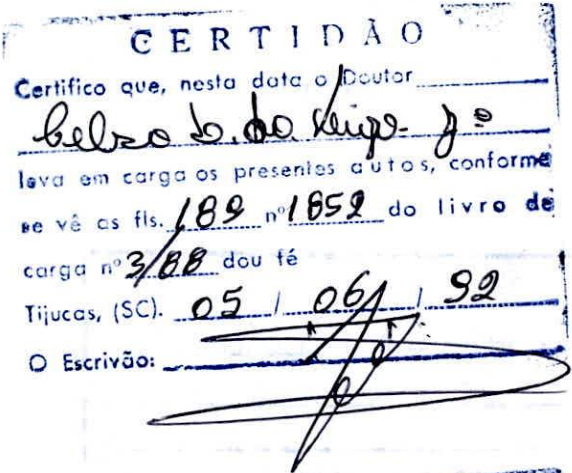 CERTIDÃO
Certifico que, nesta data o Doutor
Celso
leva em carga os presentes autos, conforme
se vê as fls. 189 nº 1859 do livro de
carga nº 3/88 dou fé
Tijucas, (SC). 05 / 06 / 92
O Escrivão: